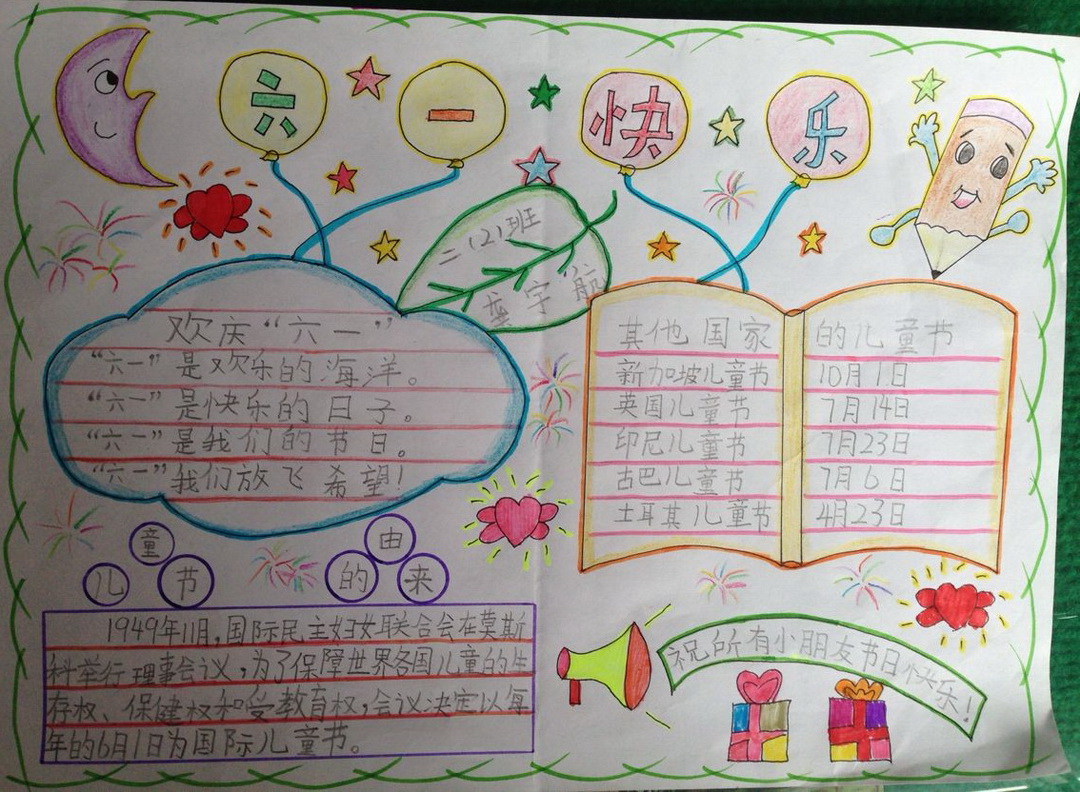 六一快乐
二(2)班
龚宇航
欢庆“六一”
“六一”是欢乐的海洋。
“六一”是快乐的日子。
“六一”是我们的节日。
“六一”我们放飞希望！
其他国家的儿童节
新加坡儿童节 10月1日
英国儿童节 7月14日
印尼儿童节 7月23日
古巴儿童节 7月6日
土耳其儿童节 4月23日
儿童节的由来
1949年11月,国际民主妇女联合会在莫斯
科举行理事会议,为了保障世界各国儿童的生
存权、保健权和受教育权,会议决定以每
年的6月1日为国际儿童节。
祝所有小朋友节日快乐！